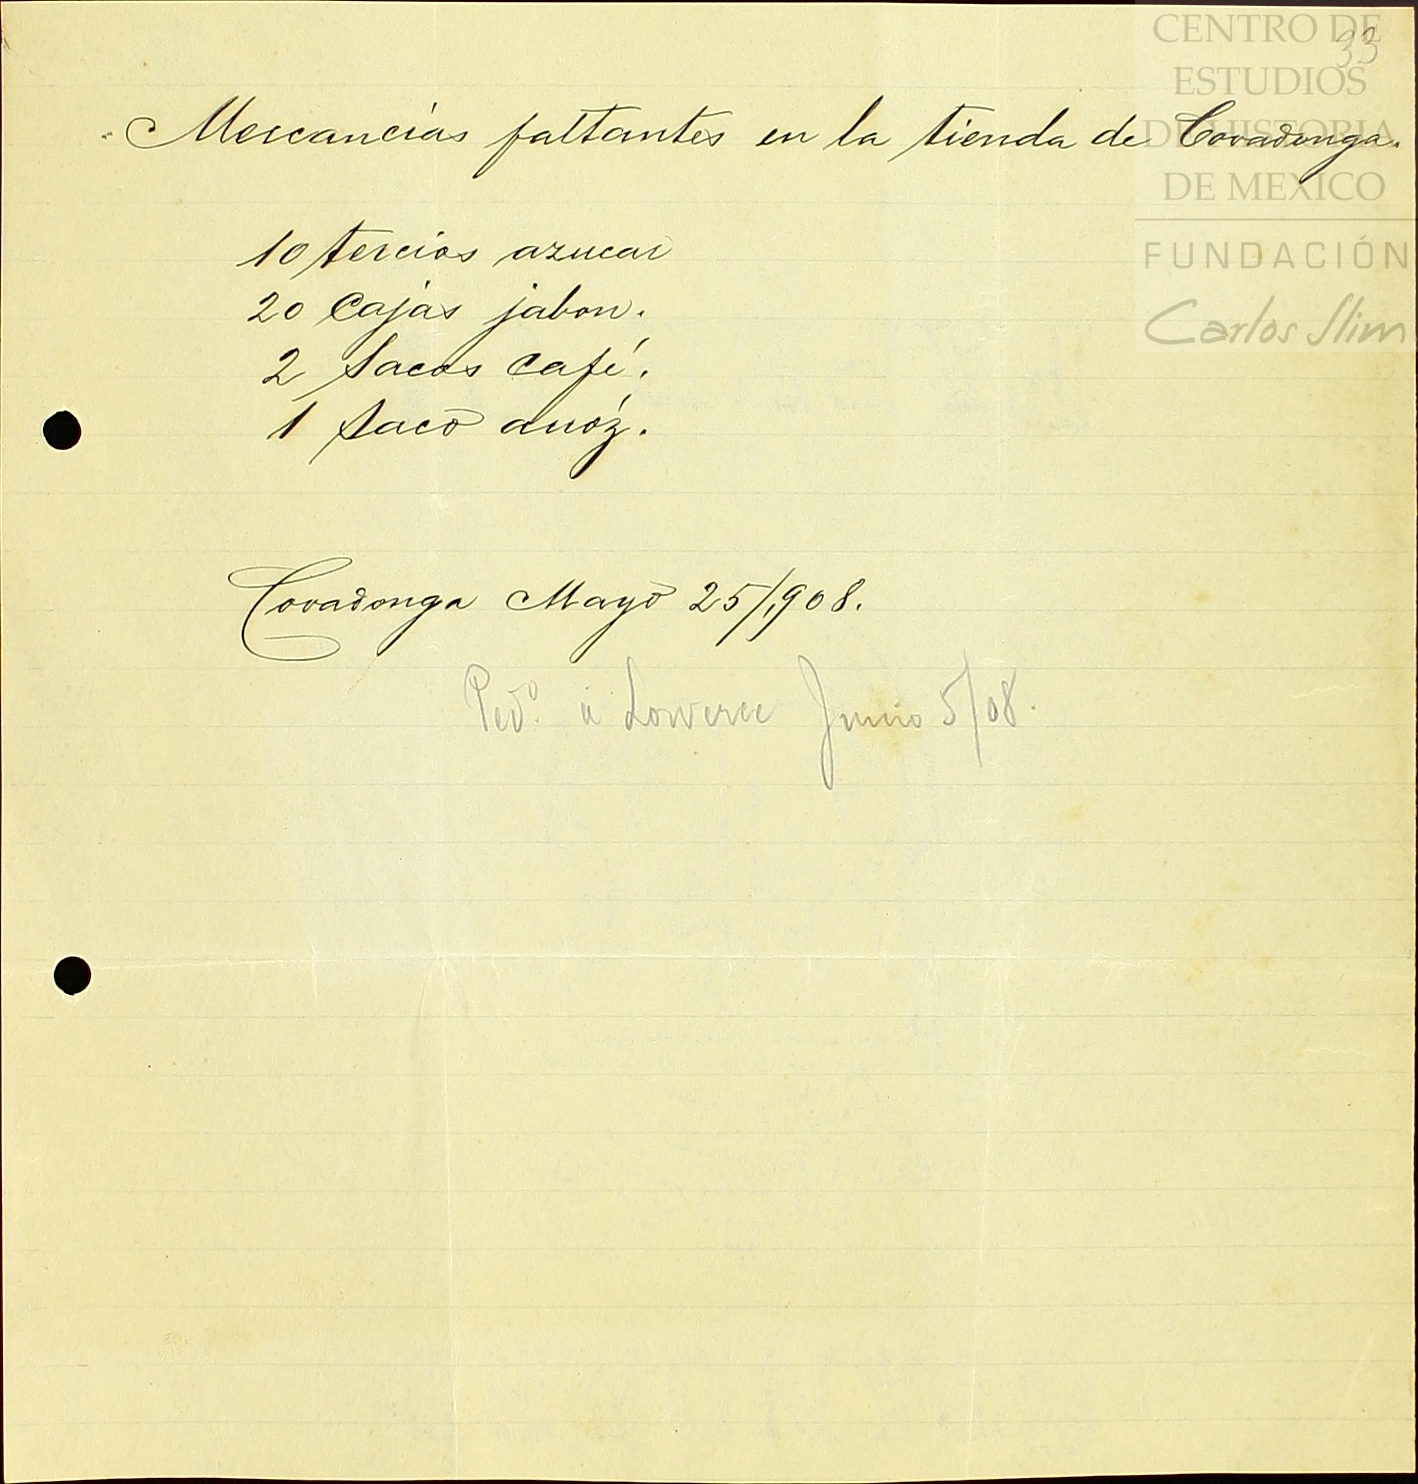 33
CENTRO DE
ESTUDIOS
DE HISTORIA
DE MEXICO
FUNDACIÓN
Carlos Slim
Mercancías faltantes en la tienda de Covadonga.
10 tercios azucar
20 Cajas jabon.
2 Sacos Café.
1 Saco arróz.
Covadonga Mayo 25/1908.
Ped.º á Loweree Junio 5/08.